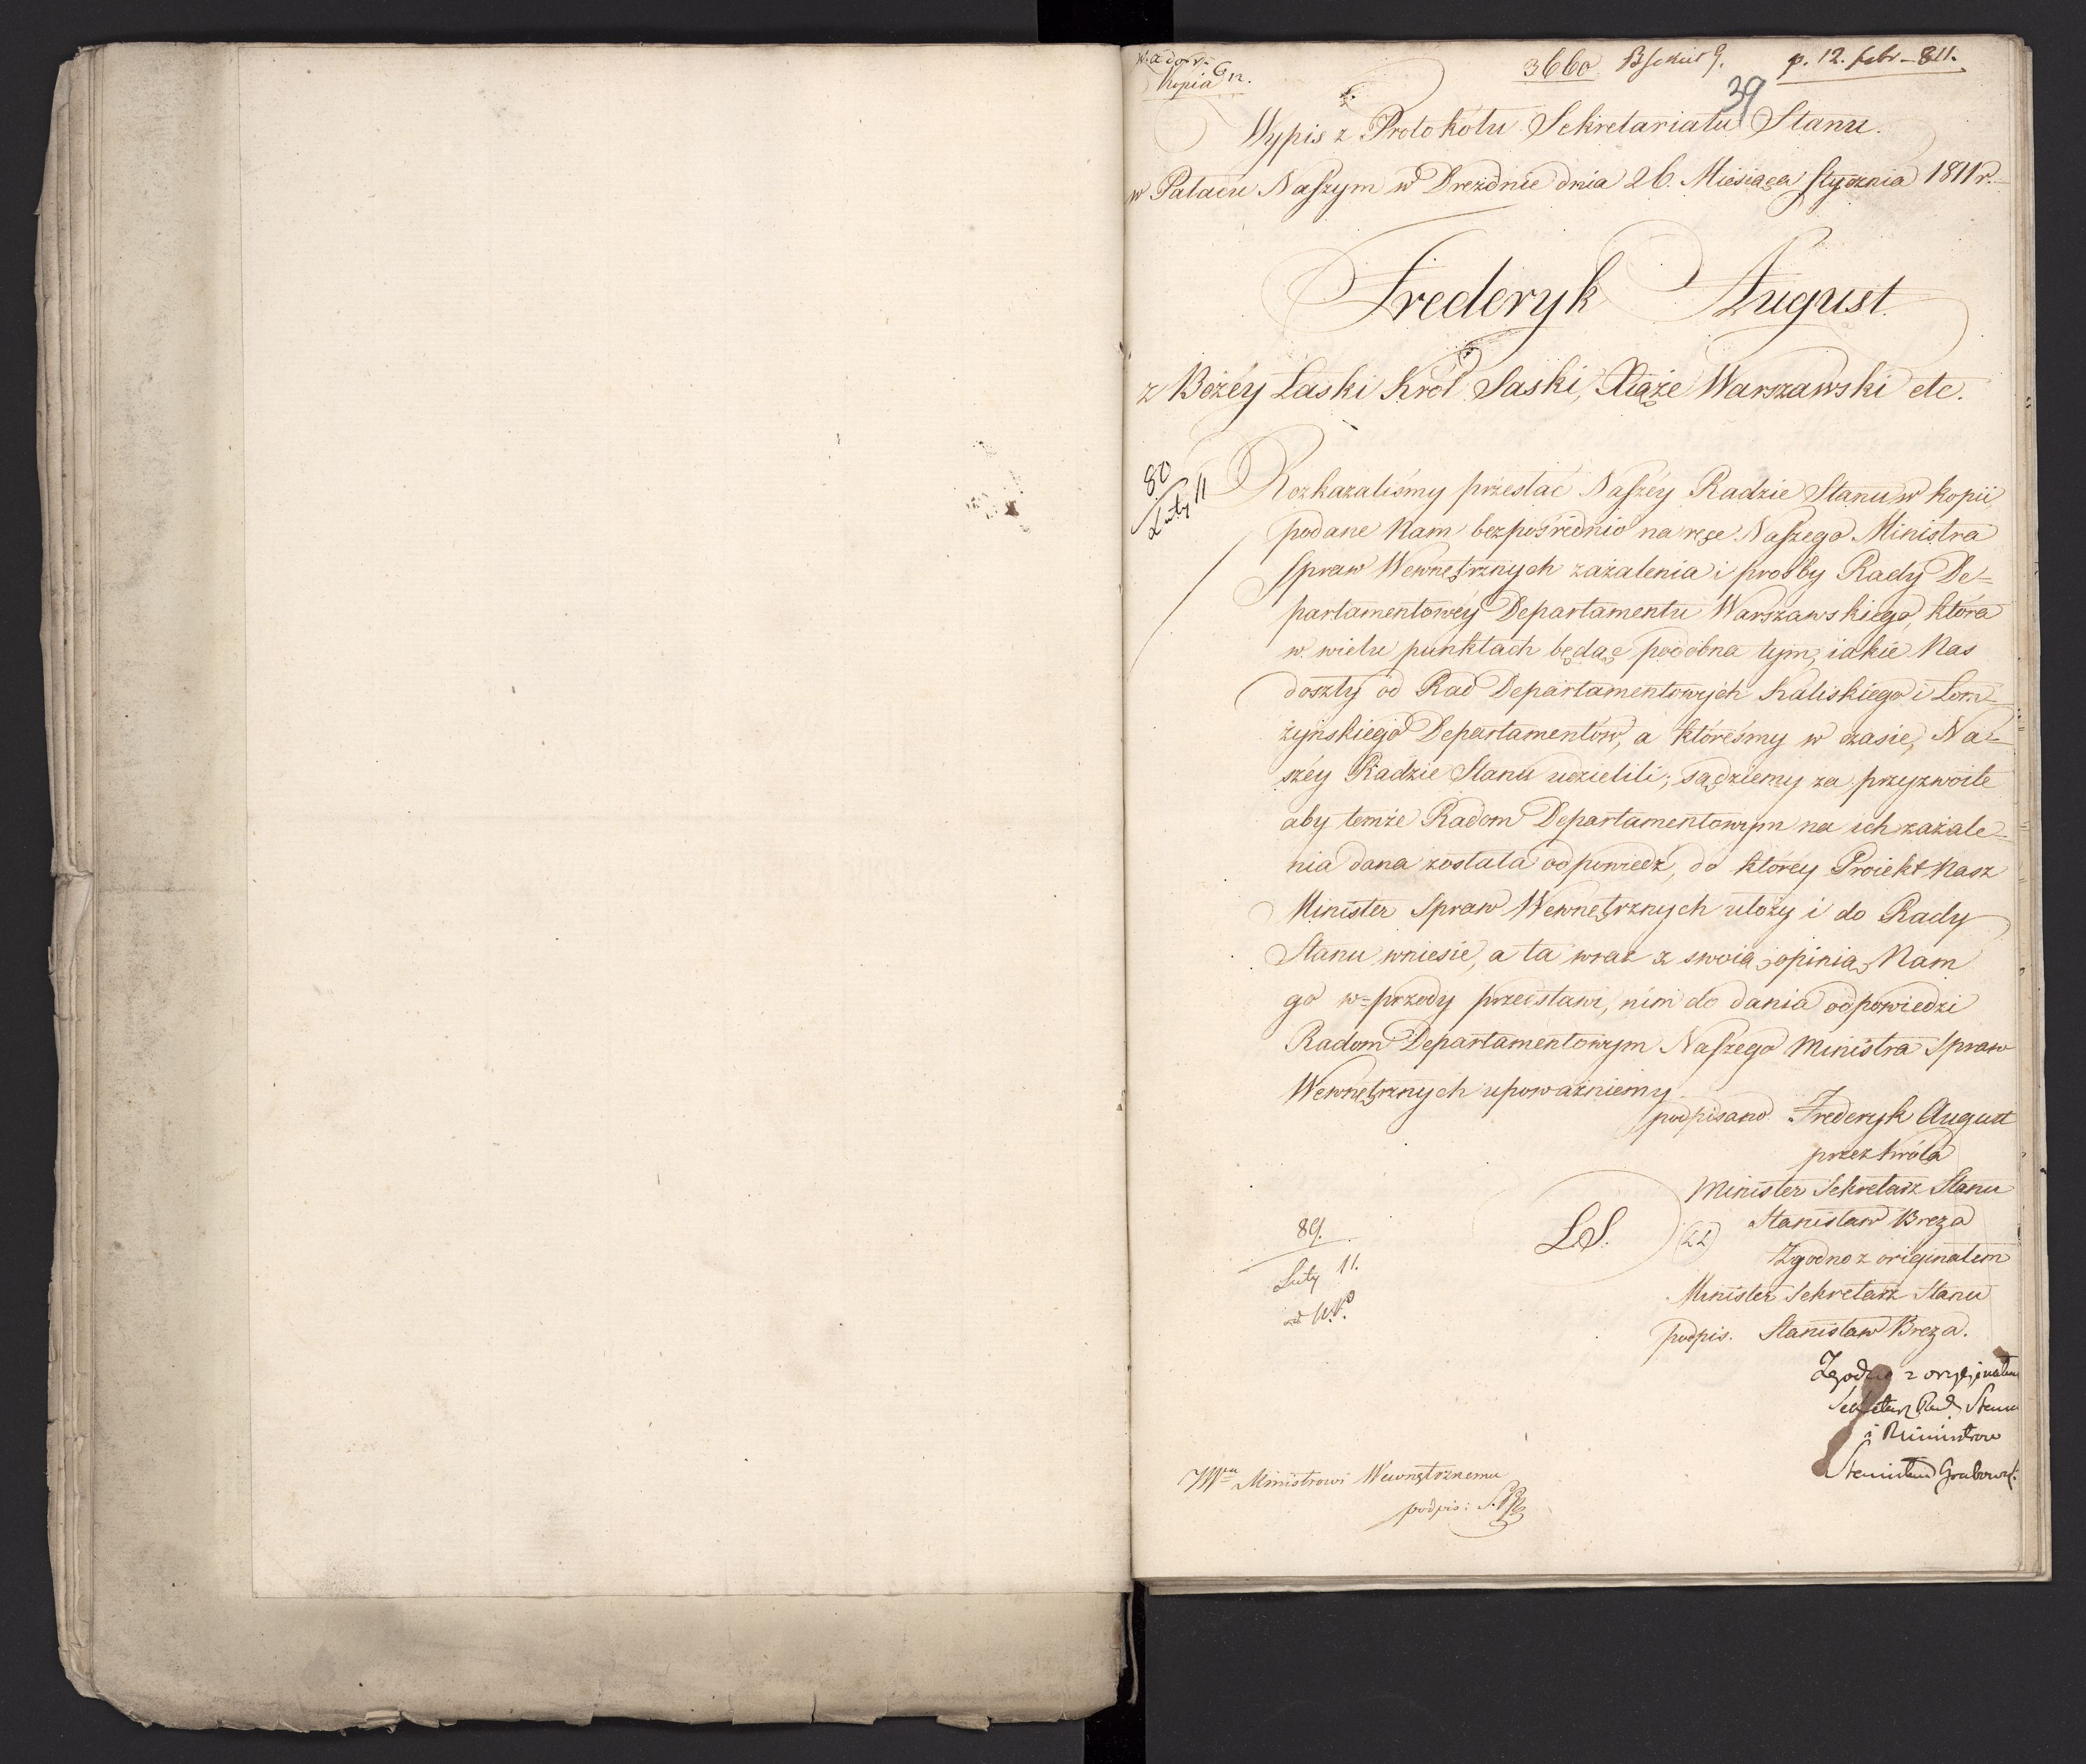 Kopia
3660 p. 12. febr. 811.
39
Wypis z Protokołu Sekretariatu Stanu.
w Pałacu Naszym w Dreźnie dnia 26. Miesiąca Stycznia 1811 r.
Frederyk August
z Bożéy Łaski Król Saski, Xiąże Warszawski etc.
80
Luty 11
Rozkazaliśmy przesłać Naszéy Radzie Stanu w kopii
podane Nam bezpośrednio na ręce Naszego Ministra
Spraw Wewnętrznych zażalenia i prośby Rady De=
partamentowéy Departamentu Warszawskiego, która
w wielu punktach będąc podobna tym, iakie Nas
doszły od Rad Departamentowych Kaliskiego i Łom=
żyńskiego Departamentów, a któreśmy w czasie, Na=
széy Radzie Stanu udzielili; sądziemy za przyzwoite
aby temże Radom Departamentowym na ich zażale=
nia dana została odpowiedź, do któréy Proiekt Nasz
Minister Spraw Wewnętrznych ułoży i do Rady
Stanu wniesie, a ta wraz z swoią opinią Nam
go w=przody przedstawi, nim do dania odpowiedzi
Radom Departamentowym Naszego Ministra Spraw
Wewnętrznych upoważniemy.
podpisano Frederyk August
przez Króla
Minister Sekretarz Stanu
L.S. Stanisław Breza
Zgodno z originałem
Minister Sekretarz Stanu
podpis. Stanisław Breza.
89.
Luty 11.
Zgodno z oryginałem
Sekretarz Rady Stanu
i Ministrów
Stanisław Grabowski
JWmu Ministrowi Wewnętrznemu
podpis: